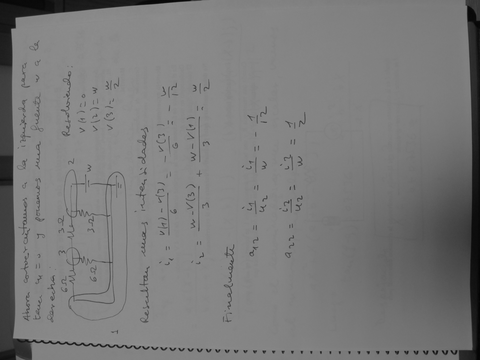 Ahora cortocircuitamos a la izquierda para
tener u₁ = 0 y ponemos una fuente w a la
derecha:
6Ω 3 3Ω 2
6Ω 3Ω w
1
Resolviendo:
V(1) = 0
V(2) = w
V(3) = w/2
Resultan unas intensidades
i₁ = (V(1) - V(3))/6 = -V(3)/6 = - w/12
i₂ = (w - V(3))/3 + (w - V(1))/3 = w/2
Finalmente
a₁₂ = i₁/u₂ = i₁/w = - 1/12
a₂₂ = i₂/u₂ = i₂/w = 1/2